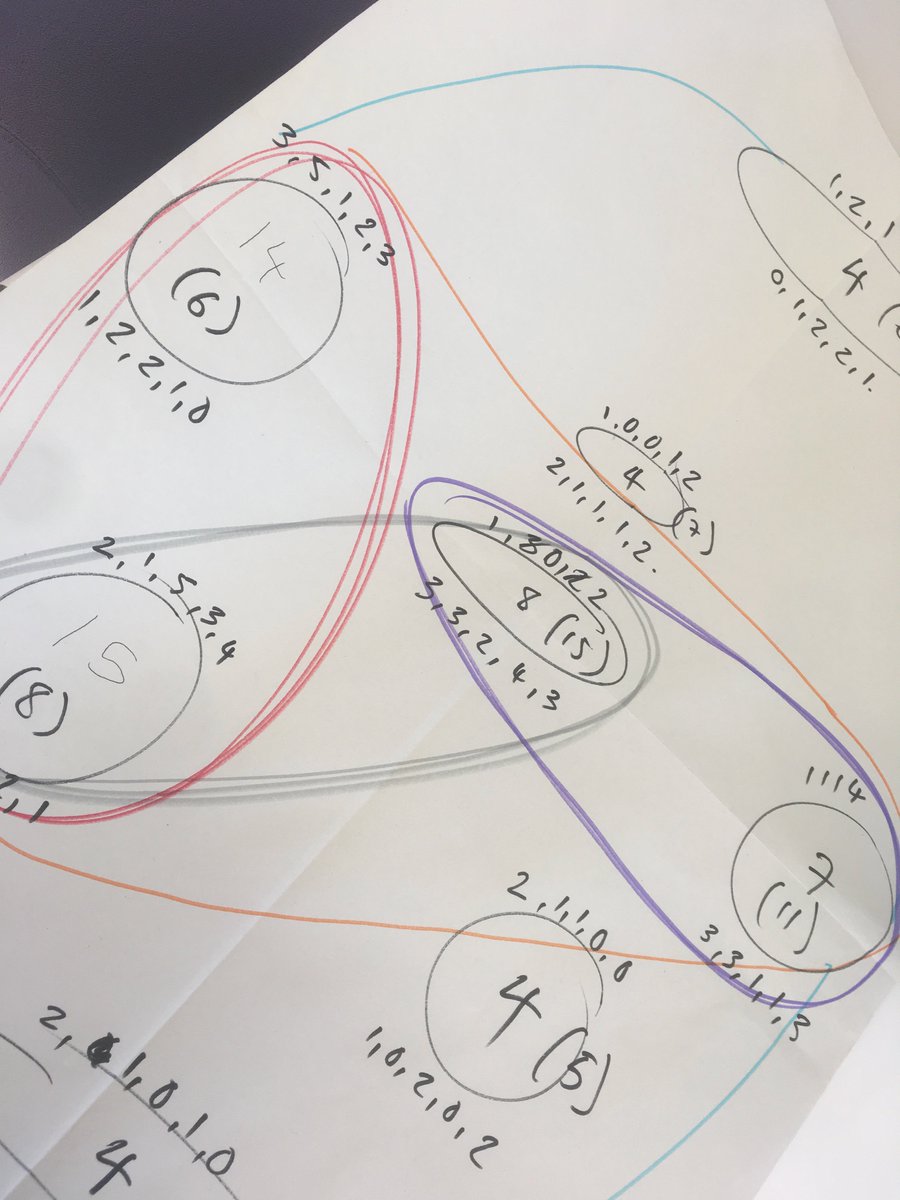 3,5,1,2,3
14
(6)
1,2,2,1,0
1,2,1
4
0,1,2,2,1.
1,0,0,1,2
4
(7)
2,1,1,1,2.
2,1,5,3,4
15
(8)
,1
8
(15)
3,3,2,4,3
1114
7
(11)
3,3,1,1,3
2,1,1,0,0
4
(5)
1,0,2,0,2
2, 1,0,1,0
4